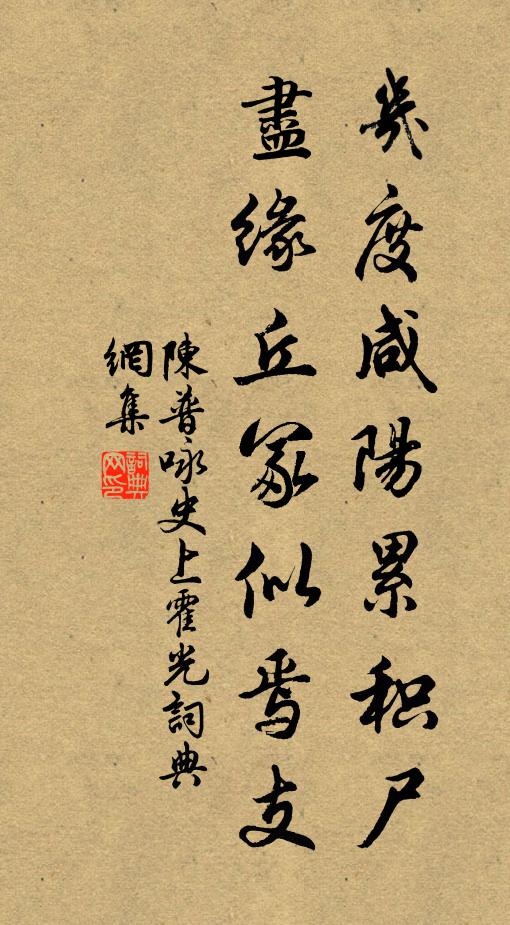 幾度咸陽累积尸
盡緣丘冢似焉支
陳普咏史上霍光詞典
網集
詞典
网印